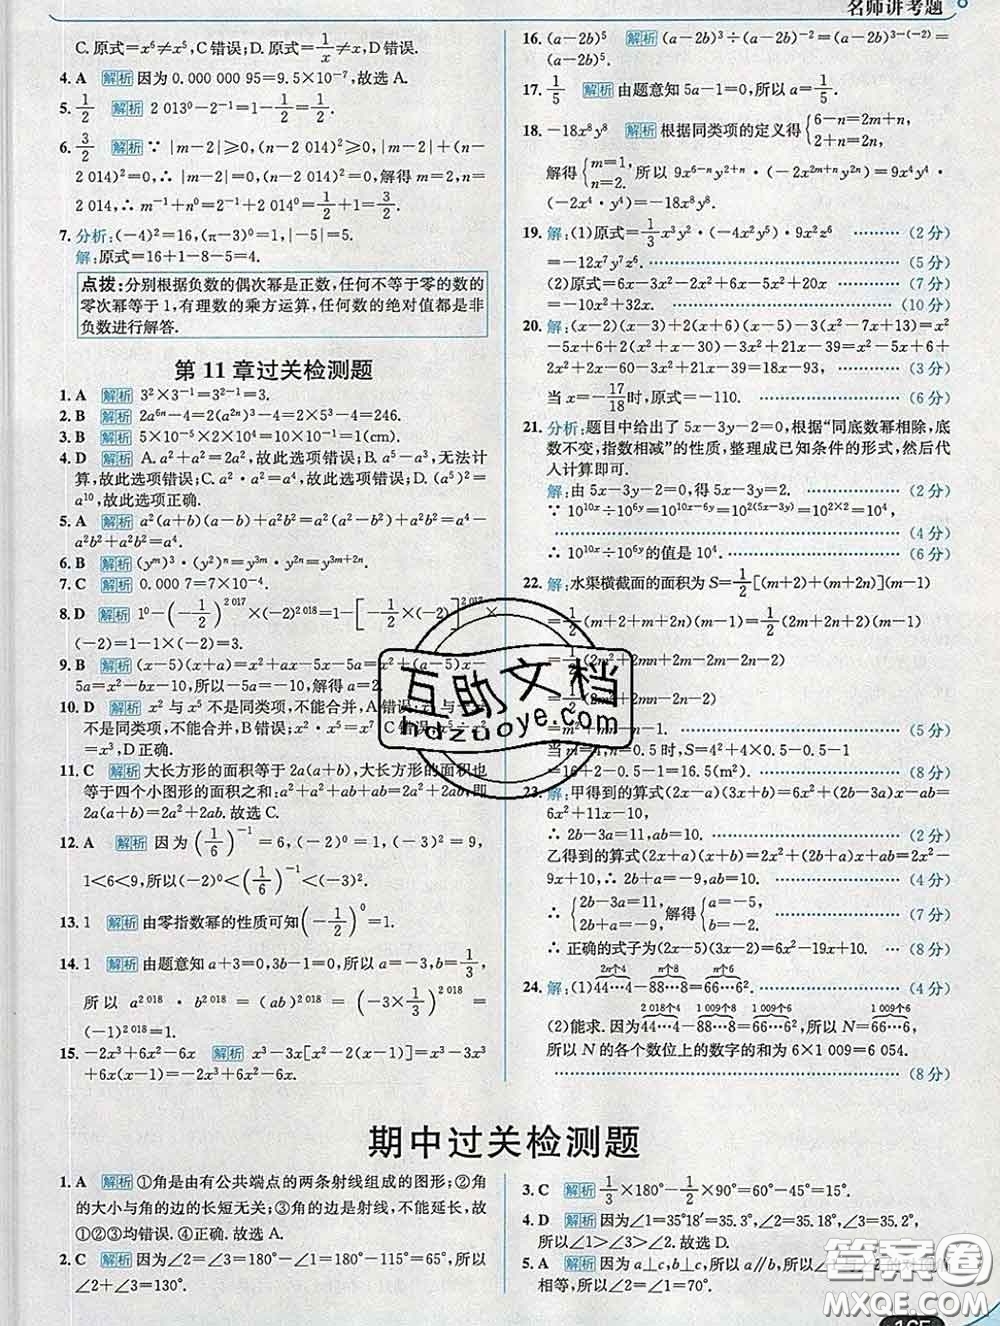 名师讲考题
C. 原式=x⁶≠x⁵,C错误;D. 原式=1/x≠x,故选A.
4. A 解析 因为0.000 000 95=9.5×10⁻⁷,故选A.
5. 1/2 解析 2 013⁰-2⁻¹=1-1/2=1/2.
6. 3/2 解析 ∵|m-2|≥0,(n-2 014)²≥0,|m-2|+(n-
2 014)²=0,∴|m-2|=0,(n-2 014)²=0,解得m=2,n=
2 014,∴m⁻¹+n⁰=1/2+1=3/2.
7. 分析:(-4)²=16,(π-3)⁰=1,|-5|=5.
解:原式=16+1-8-5=4.
点拨:分别根据负数的偶次幂是正数,任何不等于零的数的
零次幂等于1,有理数的乘方运算,任何数的绝对值都是非
负数进行解答.
第11章过关检测题
1. A 解析 3²×3⁻¹=3²⁻¹=3.
2. B 解析 2a⁶ⁿ-4=2(a²ⁿ)³-4=2×5³-4=246.
3. B 解析 5×10⁻⁵×2×10⁴=10×10⁻¹=1(cm).
4. D 解析 A. a²+a²=2a²,故此选项错误;B. a⁵-a³,无法计
算,故此选项错误;C. a²·a²=a⁴,故此选项错误;D. (a⁵)²=
a¹⁰,故此选项正确.
5. A 解析 a²(a+b)(a-b)+a²b²=a²(a²-b²)+a²b²=a⁴-
a²b²+a²b²=a⁴.
6. B 解析 (yᵐ)³·(y²)ⁿ=y³ᵐ·y²ⁿ=y³ᵐ⁺²ⁿ.
7. C 解析 0.000 7=7×10⁻⁴.
8. D 解析 1⁰-(-1/2)²⁰¹⁷×(-2)²⁰¹⁸=1-[-1/2×(-2)]²⁰¹⁷×
(-2)=1-1×(-2)=3.
9. B 解析 (x-5)(x+a)=x²+ax-5x-5a=x²+(a-5)x-
5a=x²-bx-10,所以-5a=-10,解得a=2
10. D 解析 x²与x⁵不是同类项,不能合并,A错误;x与
不是同类项,不能合并,B错误;x²·x⁴=x⁶ C错误;x⁵÷x²
=x³,D正确.
11. C 解析 大长方形的面积等于2a(a+b),大长方形的面积也
等于四个小图形的面积之和:a²+a²+ab+ab=2a²+2ab,即
2a(a+b)=2a²+2ab.故选C.
12. A 解析 因为(1/6)⁻¹=6,(-2)⁰=1,(-3)²=9,
1<6<9,所以(-2)⁰<(1/6)⁻¹<(-3)².
13. 1 解析 由零指数幂的性质可知(-1/2)⁰=1.
14. 1 解析 由题意知a+3=0,3b-1=0,所以a=-3,b=1/3,
所以a²⁰¹⁸·b²⁰¹⁸=(ab)²⁰¹⁸=(-3×1/3)²⁰¹⁸=
(-1)²⁰¹⁸=1.
15. -2x³+6x²-6x 解析 x³-3x[x²-2x(x-1)-2]=x³-3x³
+6x(x-1)=-2x³+6x²-6x.
16. (a-2b)⁵ 解析 (a-2b)³÷(a-2b)⁻²=(a-2b)³⁻⁽⁻²⁾=
(a-2b)⁵.
17. 1/5 解析 由题意知5a-1=0,所以a=1/5.
18. -18x⁸y⁸ 解析 根据同类项的定义得{6-n=2m+n, 2+n=2n,
解得{m=1, n=2. 所以9x⁶⁻ⁿy²⁺ⁿ·(-2x²ᵐ⁺ⁿy²ⁿ)=9x⁴y⁴·
(-2x⁴·y⁴)=-18x⁸y⁸.
19. 解:(1)原式=1/3x³y²·(-4x²y)·9x²z⁶ (2分)
=-12x⁷y³z⁶. (5分)
(2)原式=6x-3x²-2x²+6x-5x²+20x (7分)
=-10x²+32x. (10分)
20. 解:(x-2)(x-3)+2(x+6)(x-5)-3(x²-7x+13)=x²
-5x+6+2(x²+x-30)-3x²+21x-39=x²-5x+6+
2x²+2x-60-3x²+21x-39=18x-93, (3分)
当x=-17/18时,原式=-110. (6分)
21. 分析:题目中给出了5x-3y-2=0,根据“同底数幂相除,底
数不变,指数相减”的性质,整理成已知条件的形式,然后代
入计算即可.
解:由5x-3y-2=0,得5x-3y=2. (2分)
∵10¹⁰ˣ÷10⁶ʸ=10¹⁰ˣ⁻⁶ʸ=10²⁽⁵ˣ⁻³ʸ⁾=10²ˣ²=10⁴,
(4分)
∴10¹⁰ˣ÷10⁶ʸ的值是10⁴. (6分)
22. 解:水渠横截面的面积为S=1/2[(m+2)+(m+n)](m-1)
=1/2(m+2+m+n)(m-1)=1/2(2m+2+n)(m-1)
=1/2(2m²+2m+mn-2m-2-n)
=1/2(2m²+mn-n-2)
(5分)
当m=4,n=0.5时,S=4²+4×0.5-0.5-1
=16+2-0.5-1=16.5(m²). (8分)
23. 解:甲得到的算式(2x-a)(3x+b)=6x²+(2b-3a)x-ab=
6x²+11x-10,
∴2b-3a=11,ab=10. (2分)
乙得到的算式(2x+a)(x+b)=2x²+(2b+a)x+ab=2x²-
9x+10,∴2b+a=-9,ab=10. (4分)
∴{2b-3a=11, 2b+a=-9. 解得{a=-5, b=-2. (7分)
∴正确的式子为(2x-5)(3x-2)=6x²-19x+10. (8分)
24. 解:(1)44…4(2n个4)-88…8(n个8)=66…6²(n个6). (4分)
(2)能求.因为44…4(2 018个4)-88…8(1 009个8)=66…6²(1 009个6).所以N=66…6(1 009个6),
所以N的各个数位上的数字的和为6×1 009=6 054.
(8分)
期中过关检测题
1. A 解析 ①角是由有公共端点的两条射线组成的图形;②角
的大小与角的边的长短无关;③角的边是射线,不能延长,故
①②③均错误.④正确.故选A.
2. C 解析 因为∠2=∠3=180°-∠1=180°-115°=65°,所以
∠2+∠3=130°.
3. C 解析 1/3×180°-1/2×90°=60°-45°=15°.
4. D 解析 因为∠1=35°18′=35.3°,∠2=35.18°,∠3=35.2°,
所以∠1>∠3>∠2.故选D.
5. A 解析 因为a⊥c,b⊥c,所以a∥b,
相等,所以∠2=∠1=70°.
互助文档
hdzuoye.com
答案圈
MXQE.COM
165